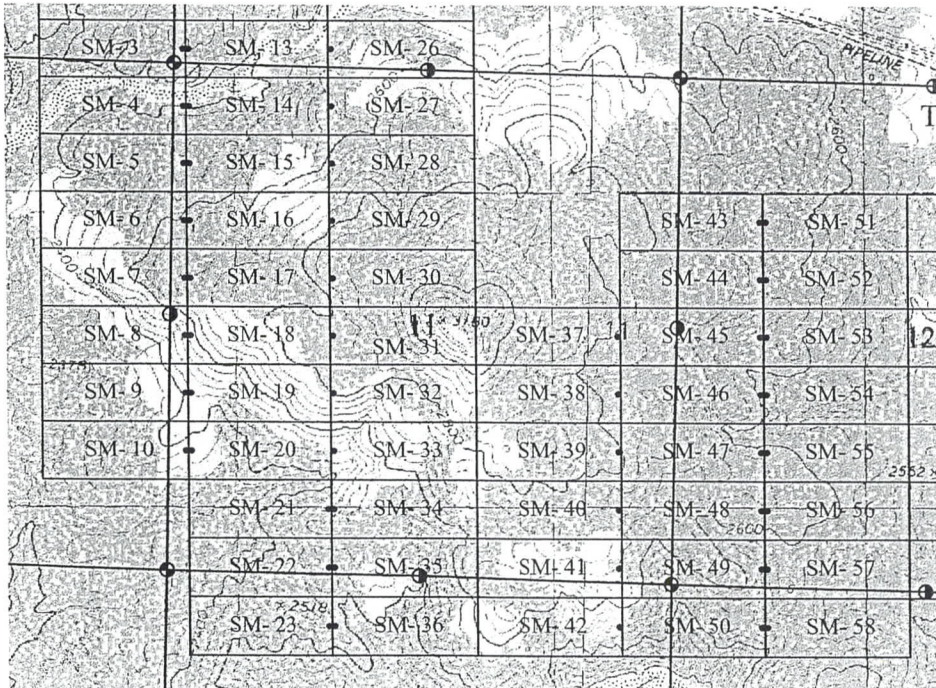 SM-3 SM-13 SM-26
PIPELINE
SM-4 SM-14 SM-27
T
SM-5 SM-15 SM-28
SM-6 SM-16 SM-29 SM-43 SM-51
SM-7 SM-17 SM-30 SM-44 SM-52
SM-8 SM-18 11 × 3160 SM-31 SM-37 11 SM-45 SM-53 12
SM-9 SM-19 SM-32 SM-38 SM-46 SM-54
SM-10 SM-20 SM-33 SM-39 SM-47 SM-55
2552 ×
SM-21 SM-34 SM-40 SM-48 SM-56
2600
SM-22 SM-35 SM-41 SM-49 SM-57
× 2518
SM-23 SM-36 SM-42 SM-50 SM-58